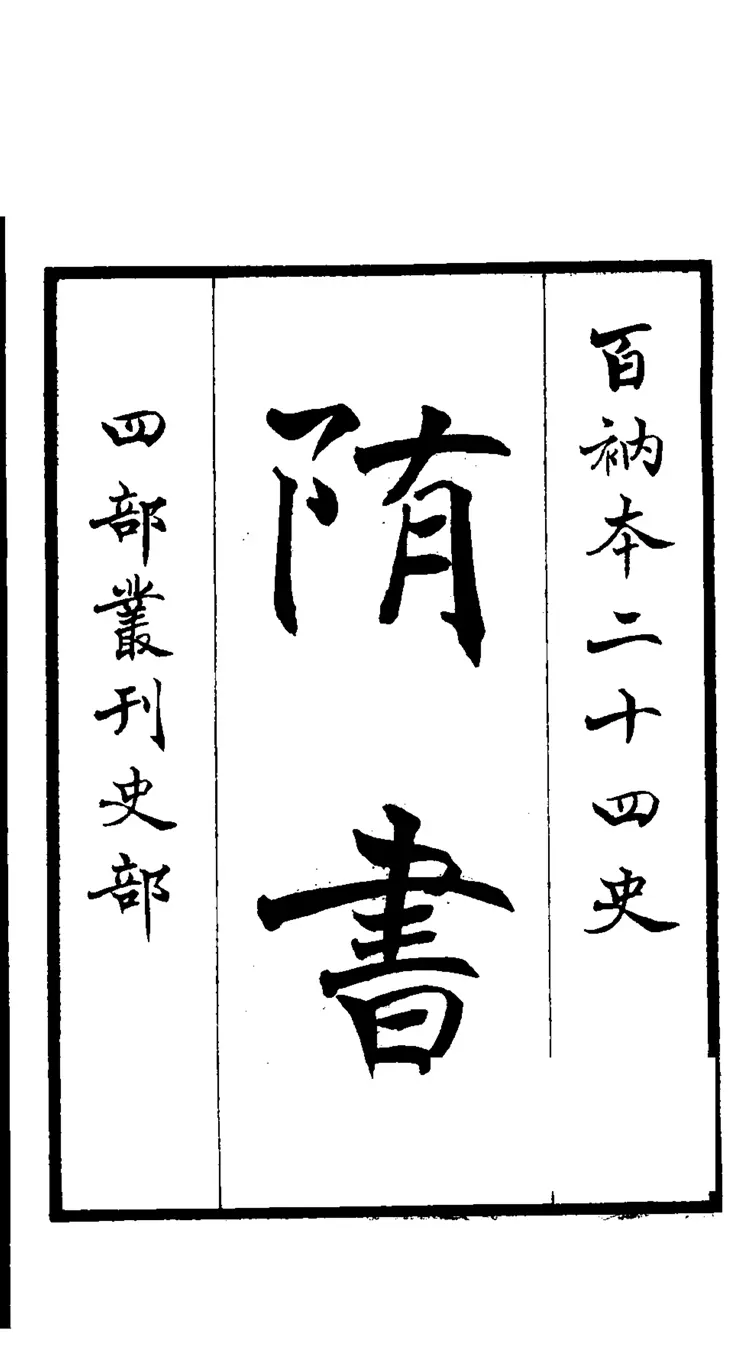 百衲本二十四史
陏書
四部叢刊史部